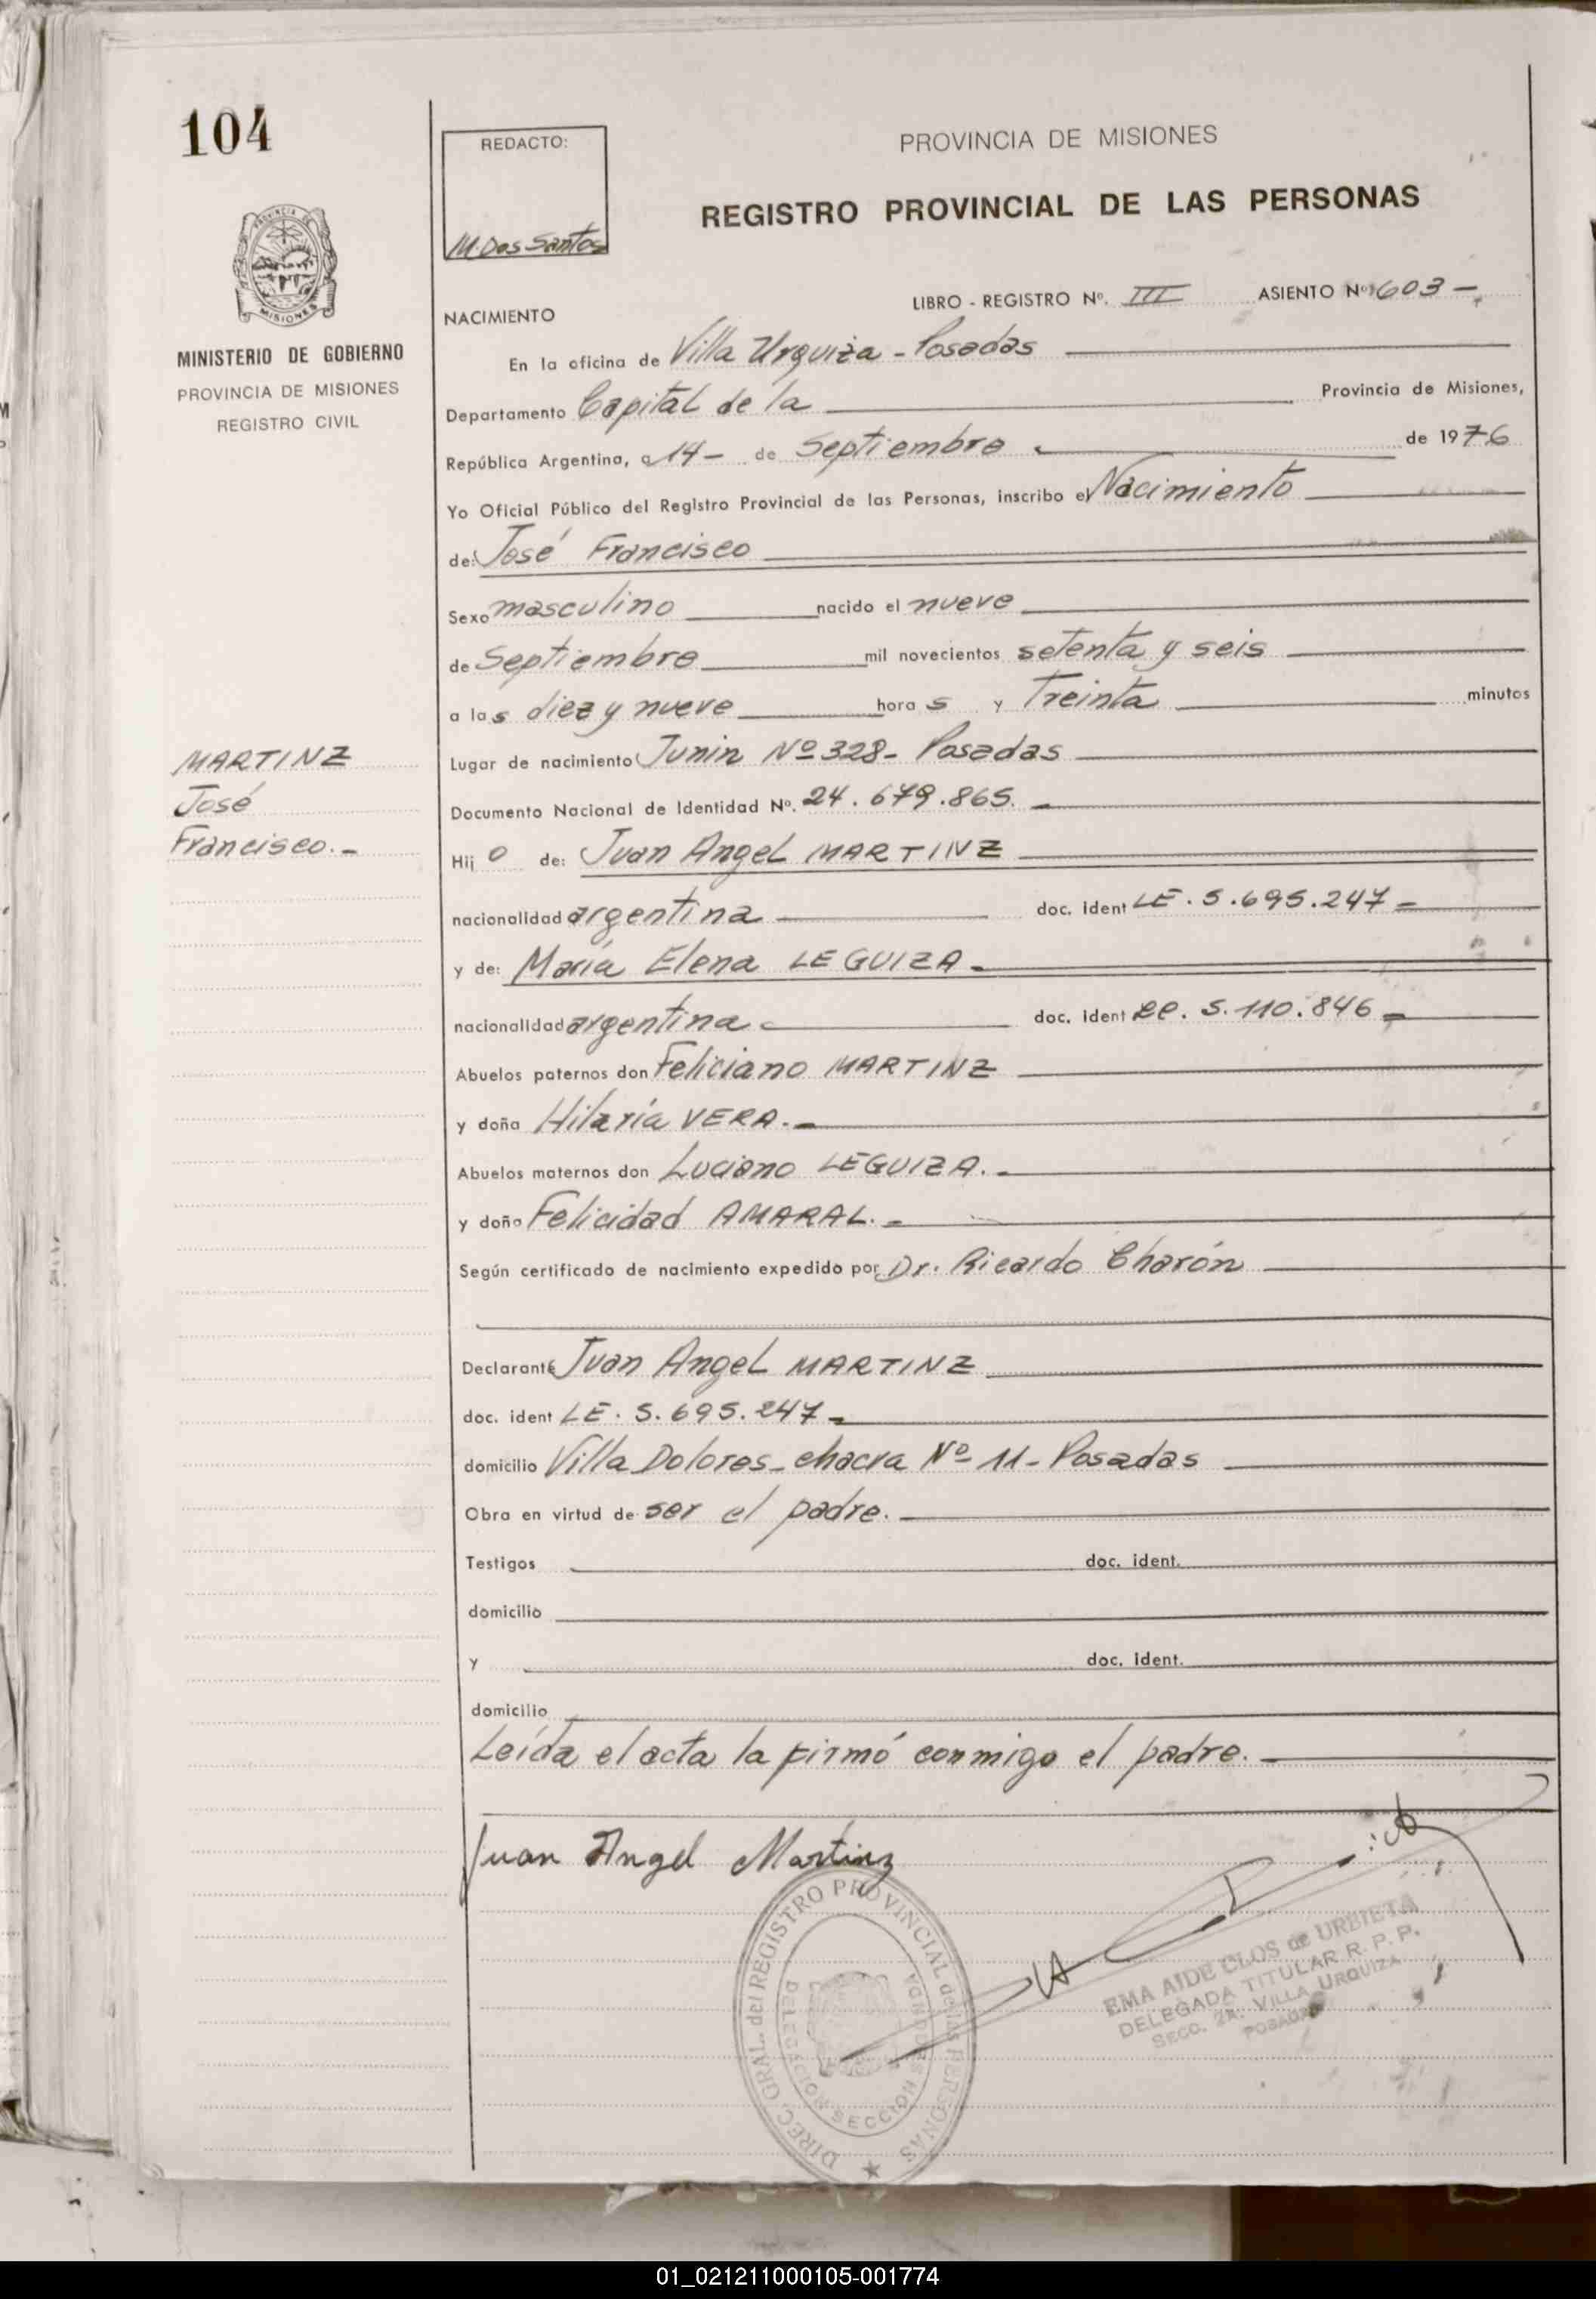 104
REDACTO:
M. Dos Santos
PROVINCIA DE MISIONES
REGISTRO PROVINCIAL DE LAS PERSONAS
MISIONES
MINISTERIO DE GOBIERNO
PROVINCIA DE MISIONES
REGISTRO CIVIL
LIBRO - REGISTRO Nº. III ASIENTO Nº 603 -
NACIMIENTO
En la oficina de Villa Urquiza - Posadas
Departamento Capital de la Provincia de Misiones,
República Argentina, a 14 - de Septiembre de 1976
Yo Oficial Público del Registro Provincial de las Personas, inscribo el Nacimiento
de: José Francisco
Sexo masculino nacido el nueve
de Septiembre mil novecientos setenta y seis
a las diez y nueve horas y Treinta minutos
MARTINZ
José
Francisco. -
Lugar de nacimiento Junin Nº 328 - Posadas
Documento Nacional de Identidad Nº. 24.679.865. -
Hijo de: Juan Angel MARTINZ
nacionalidad argentina doc. ident LE. 5.695.247 -
y de: María Elena LEGUIZA -
nacionalidad argentina doc. ident LC. 5.110.846 -
Abuelos paternos don Feliciano MARTINZ
y doña Hilaria VERA. -
Abuelos maternos don Luciano LEGUIZA. -
y doña Felicidad AMARAL. -
Según certificado de nacimiento expedido por Dr. Ricardo Charón
Declarante Juan Angel MARTINZ
doc. ident LE. 5.695.247 -
domicilio Villa Dolores - chacra Nº 11 - Posadas
Obra en virtud de ser el padre.
Testigos doc. ident.
domicilio
y doc. ident.
domicilio
Leída el acta la firmó conmigo el padre. -
Juan Angel Martinz
DIREC. GRAL. del REGISTRO PROVINCIAL de las PERSONAS
DELEGACION SECCION SEGUNDA
EMA AIDE CLOS de URBIETA
DELEGADA TITULAR R. P. P.
SECC. 2A. VILLA URQUIZA
POSADAS
01_021211000105-001774